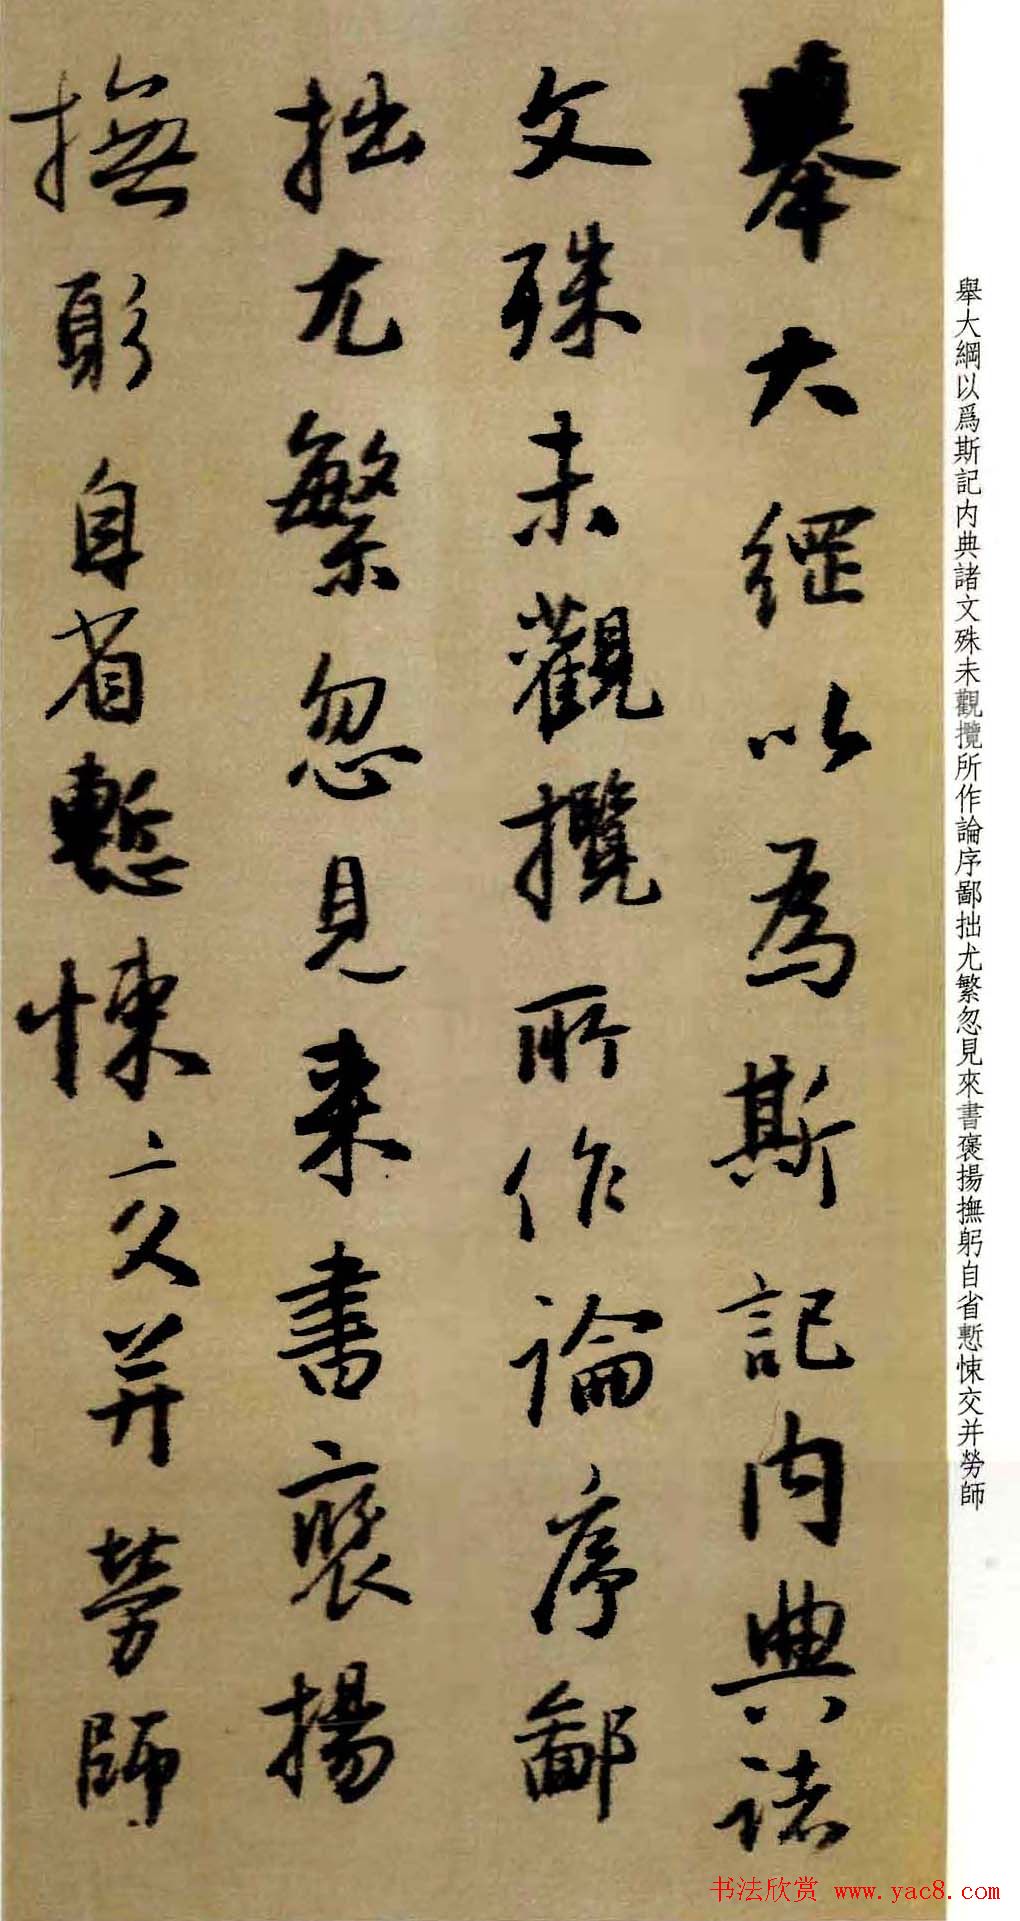 舉大綱以爲斯記內典諸文殊未觀攬所作論序鄙拙尤繁忽見來書褒揚撫躬自省慙悚交并勞師
舉大綱以為斯記内典諸
文殊未觀攬所作論序鄙
拙尤繁忽見来書襃揚
撫躬自省慙悚交并勞師
书法欣赏 www.yac8.com